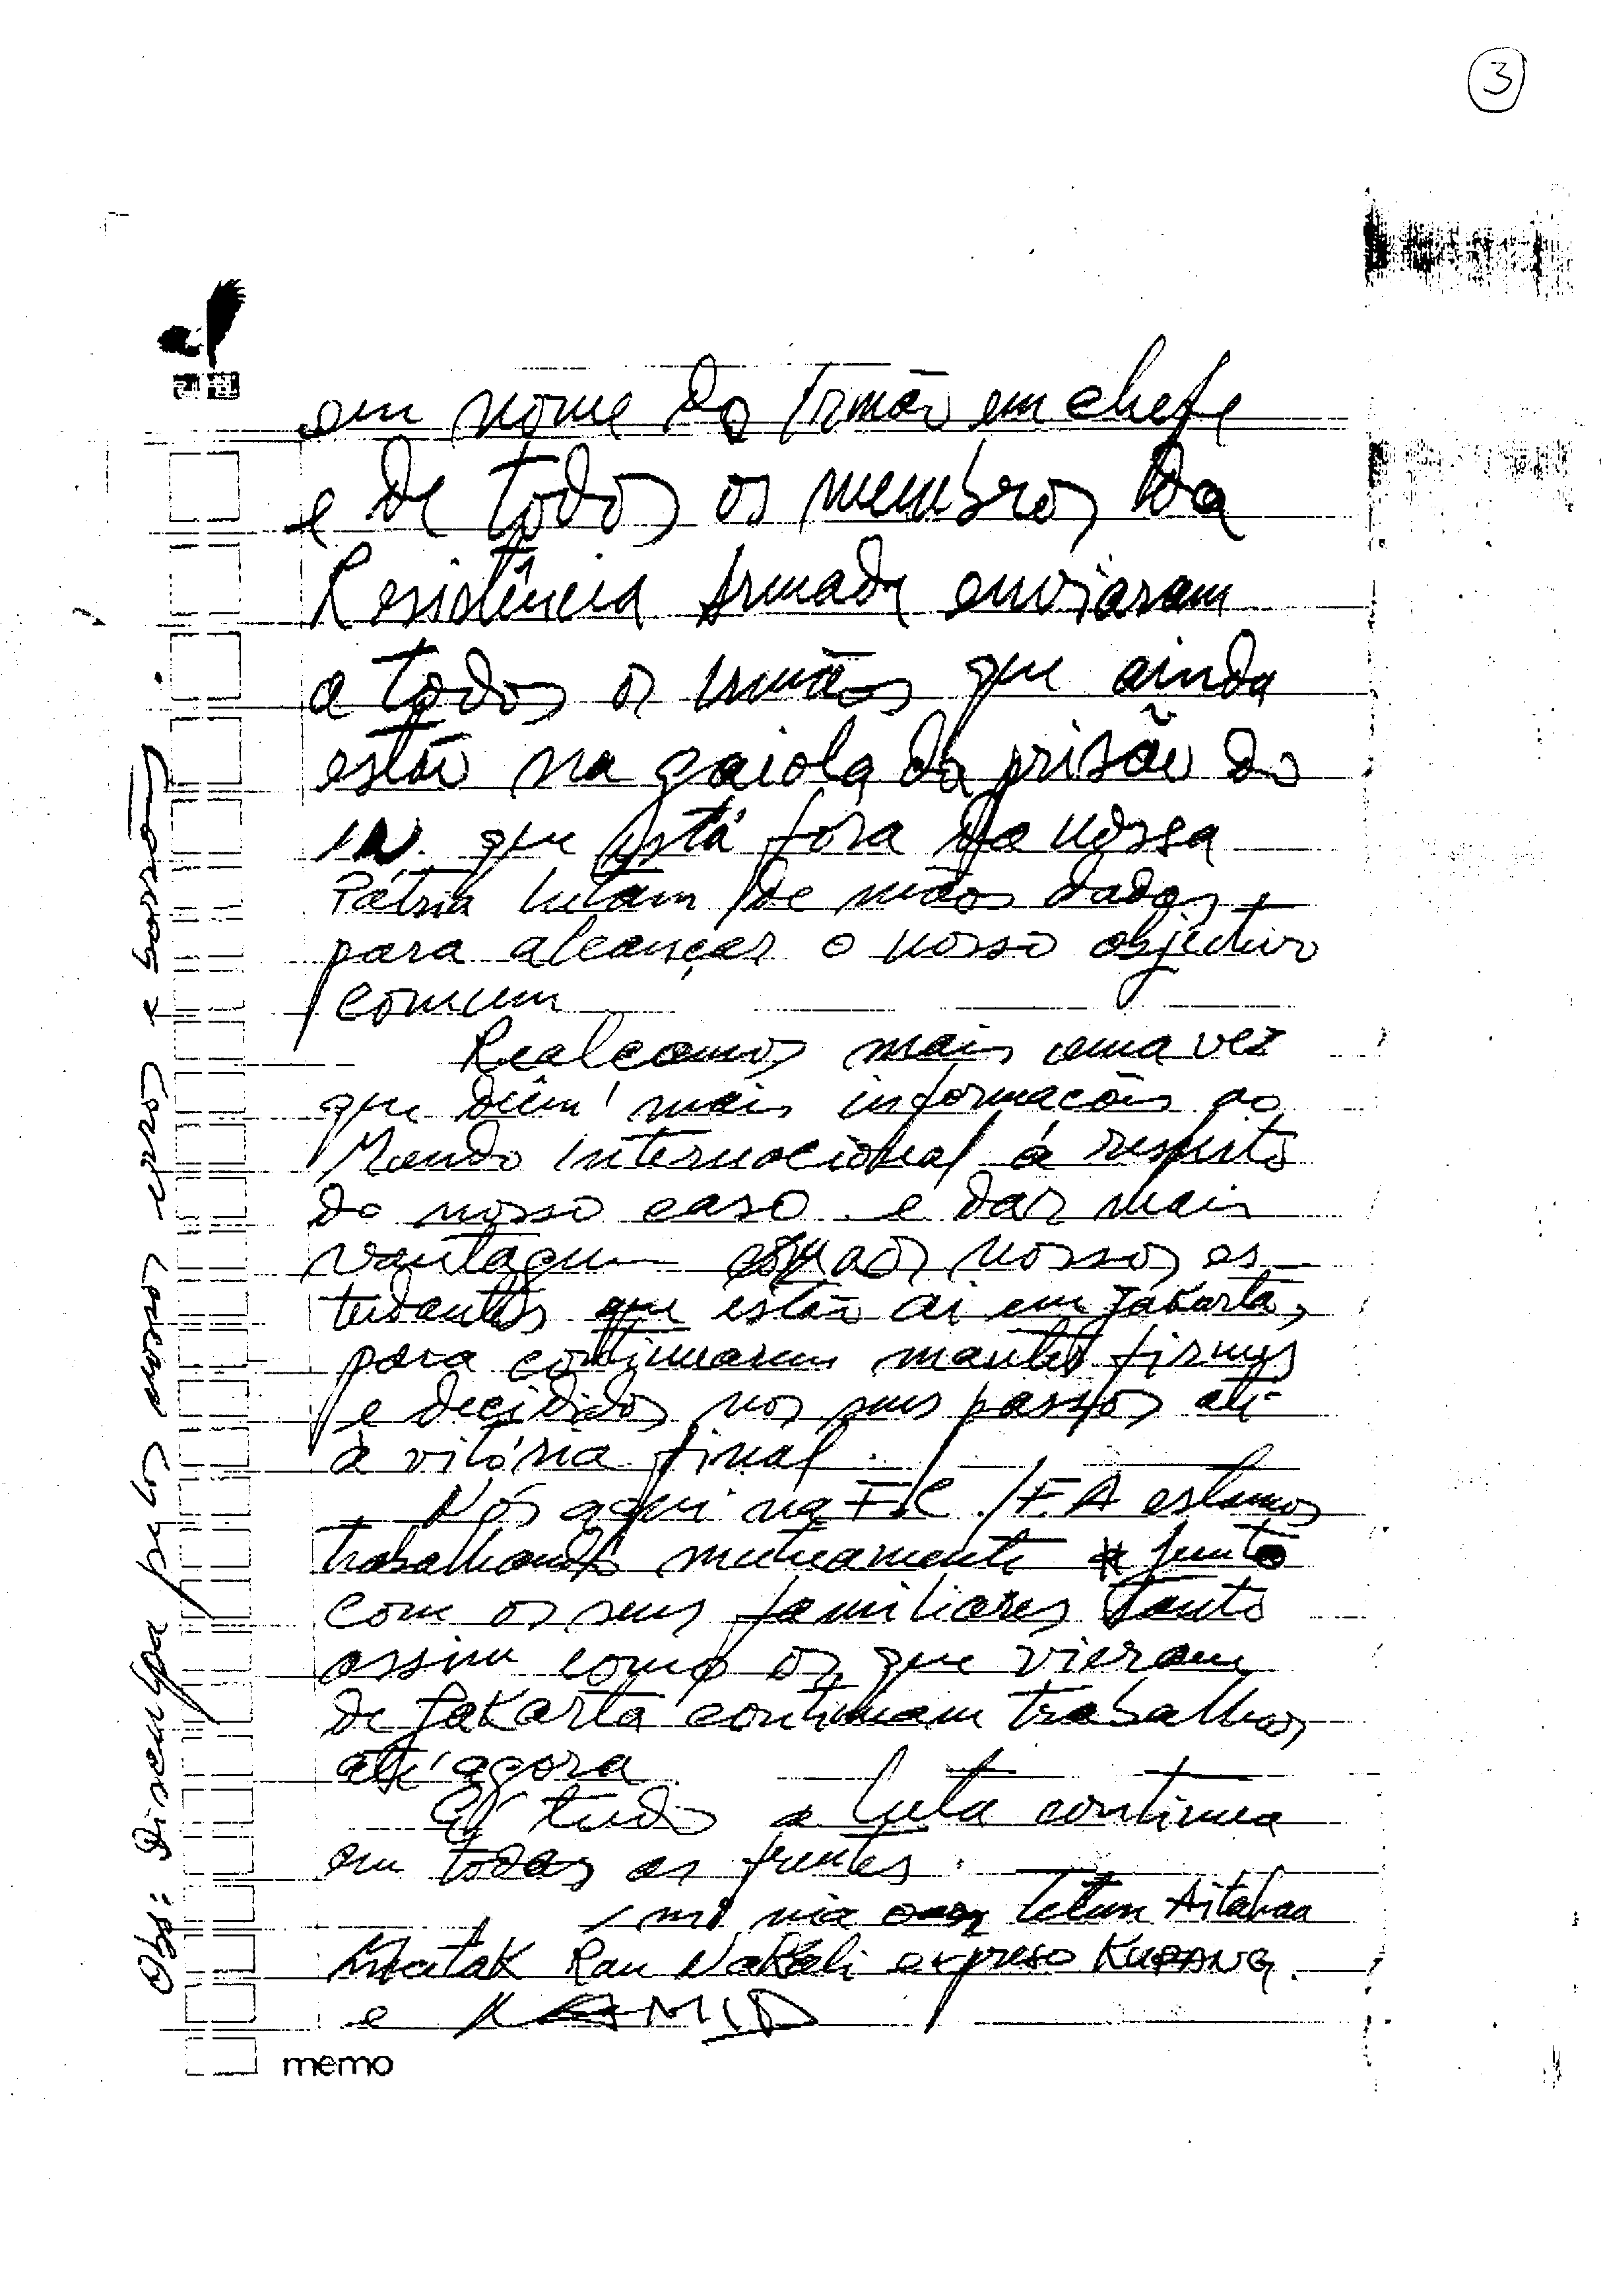 3
em nome do Irmão em chefe
e de todos os membros da
Resistência Armada enviaram
a todos os irmãos que ainda
estão na gaiola da prisão do
in. que está fora da nossa
Pátria lutam de mãos dadas
para alcançar o nosso objectivo
comum
Realcamos mais uma vez
que dêm mais informacões ao
Mundo Internacional á respeito
do nosso caso e dar mais
vantagem aos nossos es-
tudantes que estão ai em Jakarta,
para continuarem manter firmes
e decididos nos seus passos até
à vitória final.
Nós aqui na FC/FA estamos
trabalhando mutuamente junto
com os seus familiares tanto
assim como os que vieram
de Jakarta continuam trabalhos
até agora
É tudo a luta continua
em todas as frentes.
Aitahan
Ran Nakali expreso KUPANG.
e
Obs: Disculpa pelos nossos erros e borrão
memo